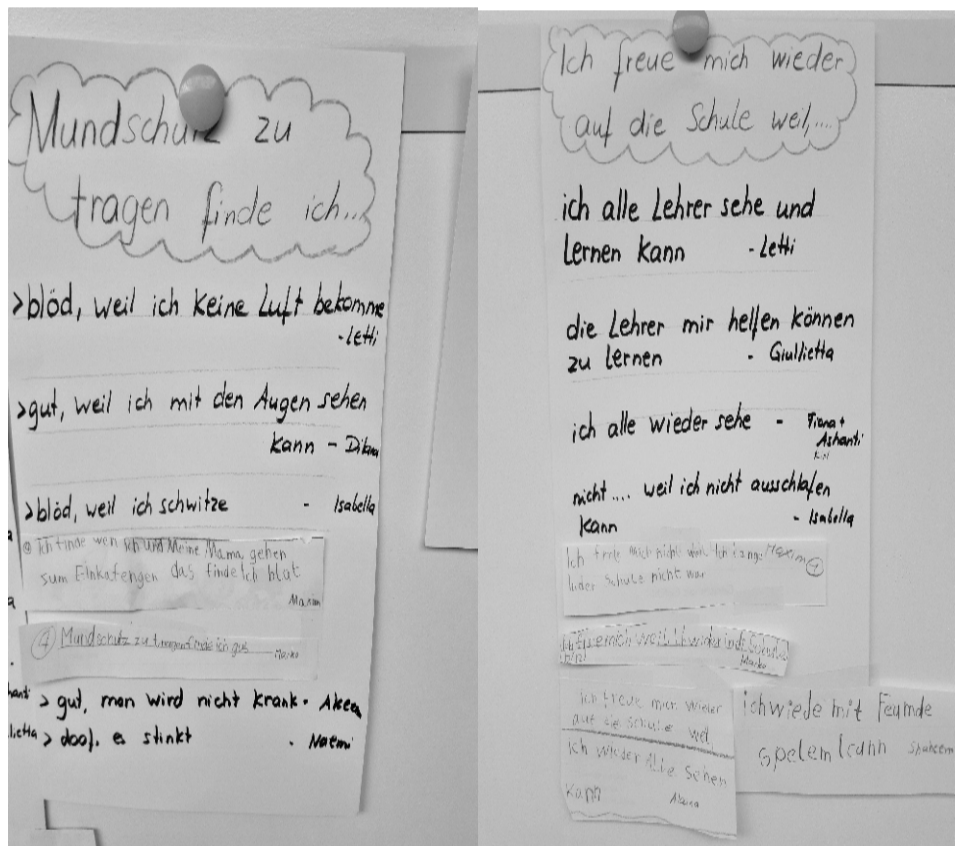 Mundschutz zu
tragen finde ich...
>blöd, weil ich keine Luft bekomme
-Letti
>gut, weil ich mit den Augen sehen
kann - Diana
>blöd, weil ich schwitze - Isabella
Ich finde wen ich und Meine Mama gehen
sum Einkafengen das finde Ich blöt
Maxim
Mundschutz zu tragen finde ich gus Marko
> gut, man wird nicht krank - Akea
> doof, es stinkt - Naemi
Ich freue mich wieder
auf die Schule weil,....
ich alle Lehrer sehe und
lernen kann - Letti
die Lehrer mir helfen können
zu lernen - Giullietta
ich alle wieder sehe - Fiona +
Ashanti
nicht.... weil ich nicht ausschlafen
kann - Isabella
Ich freue mich nicht weil Ich lange Maxim
in der Schule nicht war
freue mich weil
Marko
Ich freue mich wieder
auf die Schule weil
ich wieder Alle sehen
kann
ich wiede mit Feumde
spelem kann